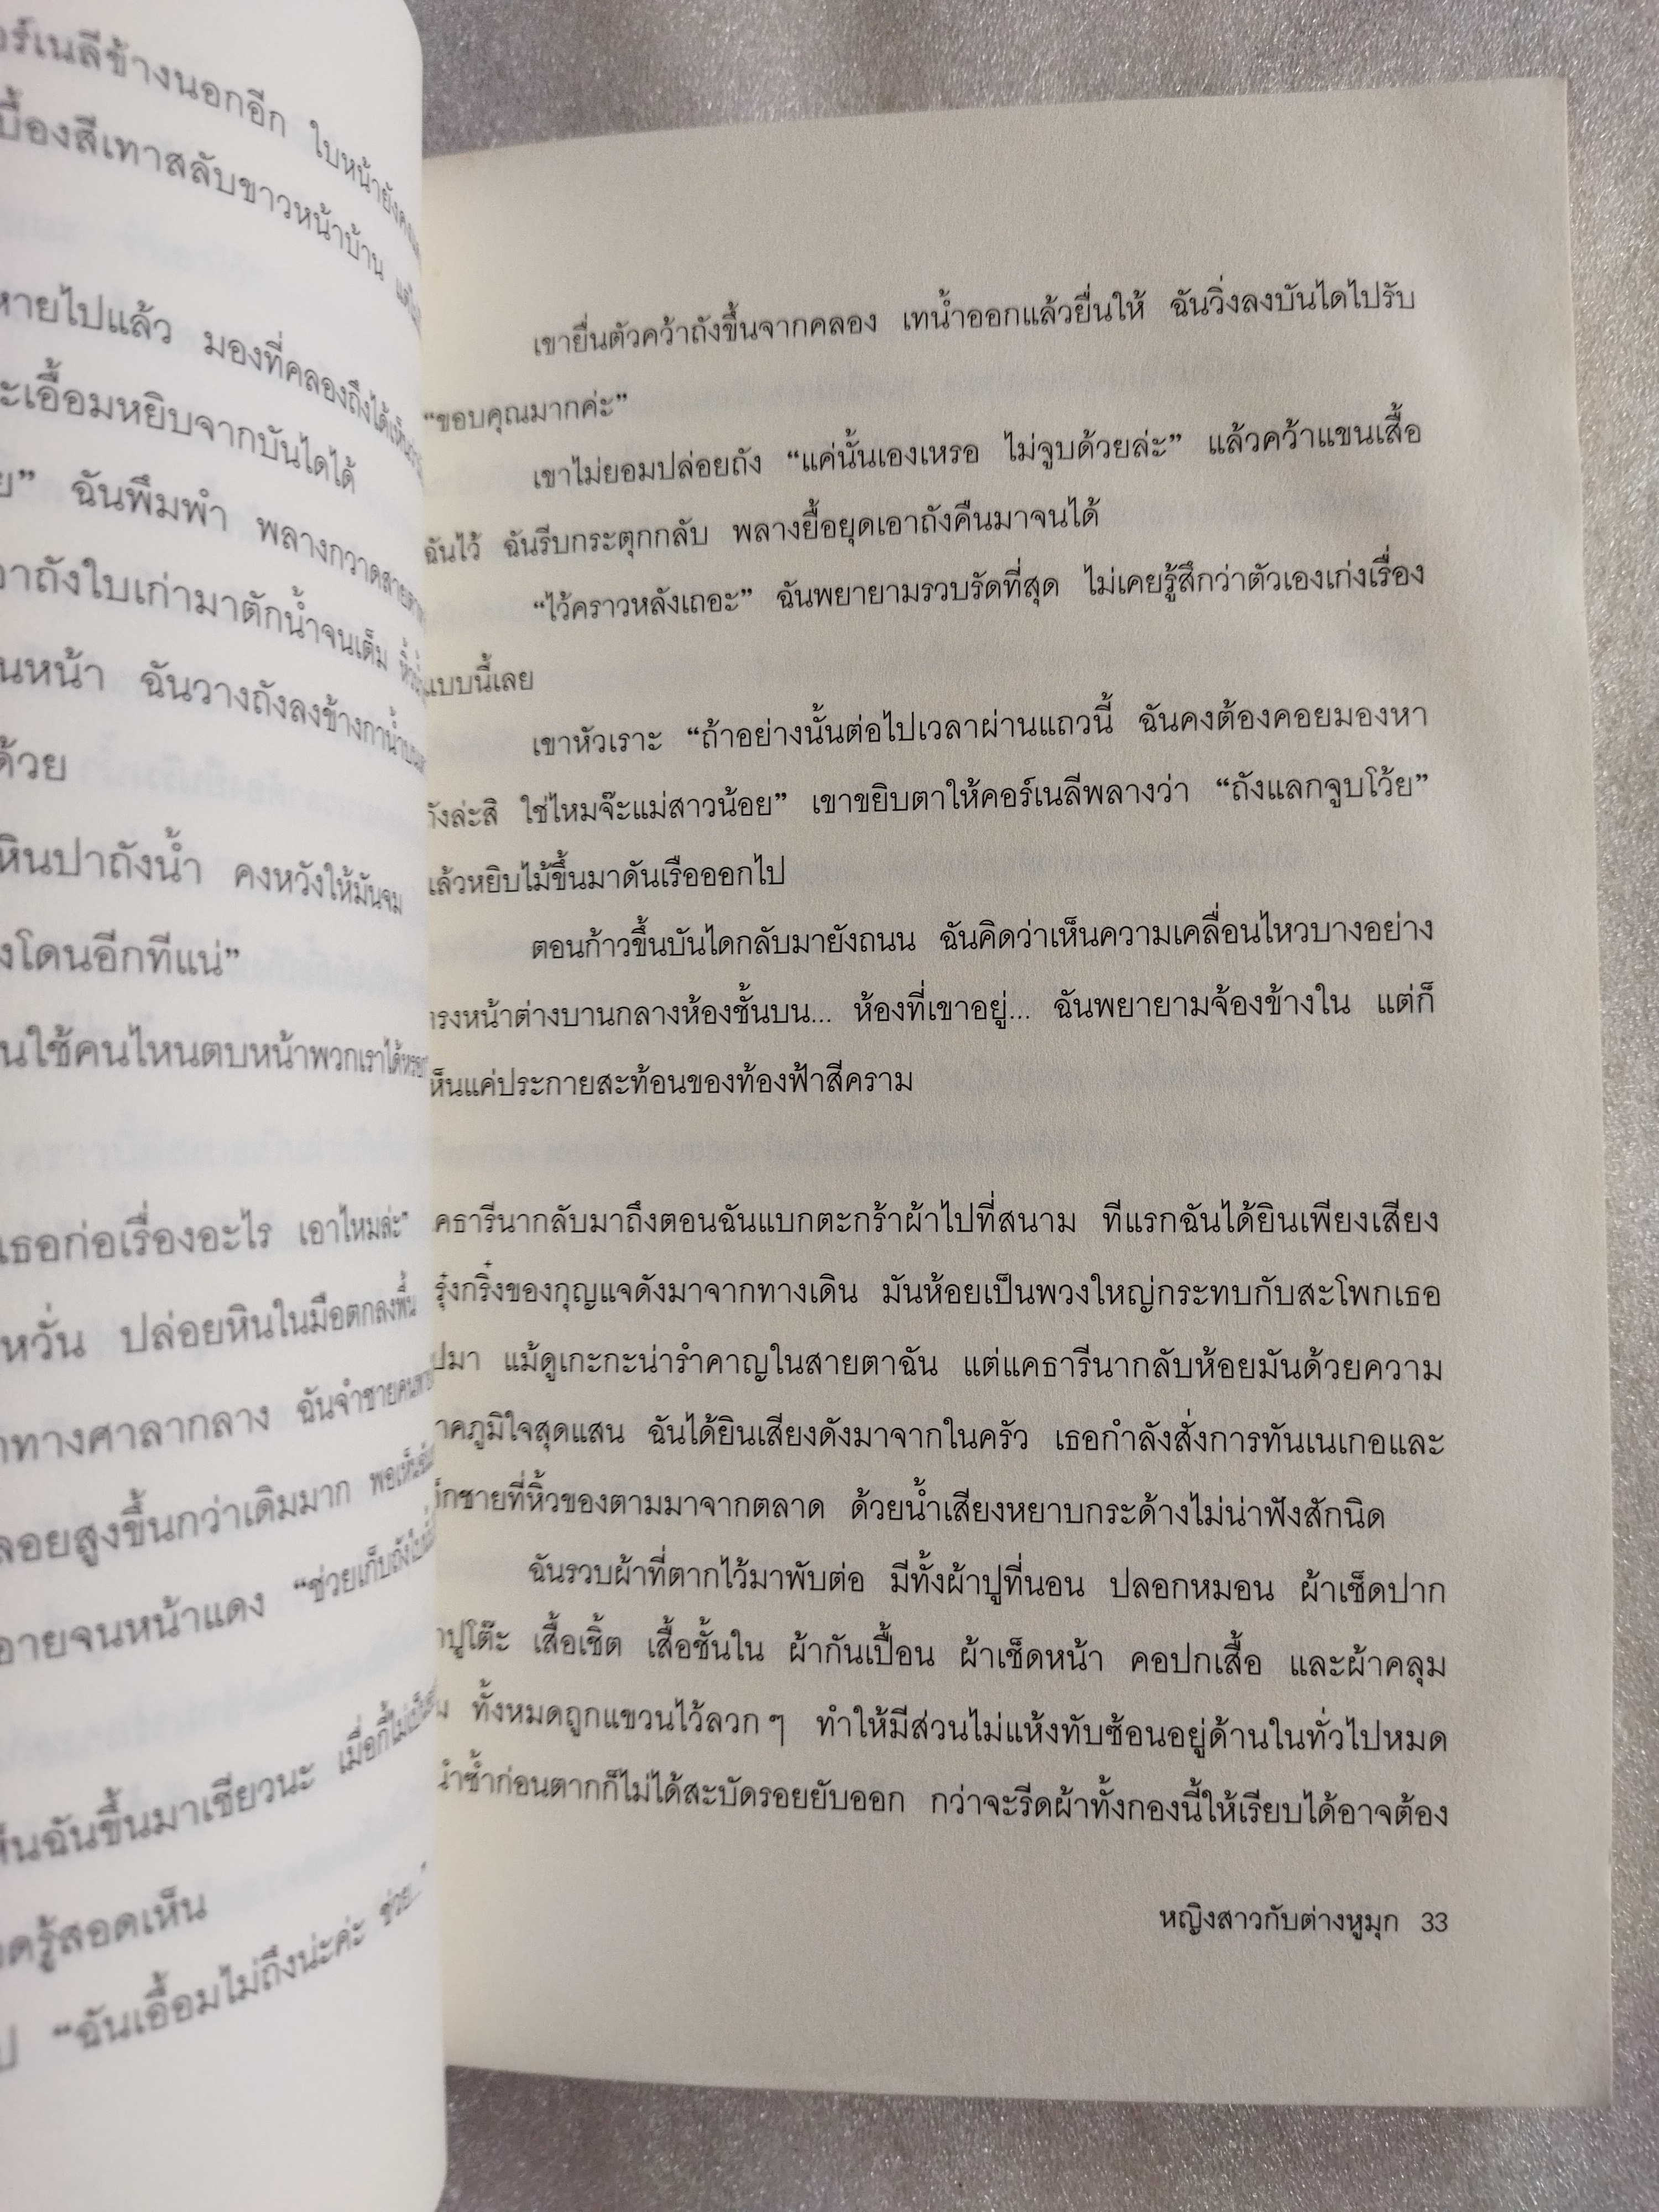 ร์เนลีข้างนอกอีก ใบหน้ายัง
บื้องสีเทาสลับขาวหน้าบ้าน
หายไปแล้ว มองที่คลองถึงได้
ะเอื้อมหยิบจากบันไดได้
ย” ฉันพึมพำ พลางกวาดสายตา
อาถังใบเก่ามาตักน้ำจนเต็ม
นหน้า ฉันวางถังลงข้างกาน้ำ
ด้วย
หินปาถังน้ำ คงหวังให้มันจม
งโดนอีกทีแน่”
นใช้คนไหนตบหน้าพวกเราได้
เธอก่อเรื่องอะไร เอาไหมล่ะ”
หวั่น ปล่อยหินในมือตกลงพื้น
ทางศาลากลาง ฉันจำชาย
ลอยสูงขึ้นกว่าเดิมมาก
อายจนหน้าแดง “ช่วยเก็บถัง
ห็นฉันขึ้นมาเชียวนะ เมื่อกี้
ดรู้สอดเห็น
ป “ฉันเอื้อมไม่ถึงน่ะค่ะ ช่วย...”
เขายื่นตัวคว้าถังขึ้นจากคลอง เทน้ำออกแล้วยื่นให้ ฉันวิ่งลงบันไดไปรับ
“ขอบคุณมากค่ะ”
เขาไม่ยอมปล่อยถัง “แค่นั้นเองเหรอ ไม่จูบด้วยล่ะ” แล้วคว้าแขนเสื้อ
ฉันไว้ ฉันรีบกระตุกกลับ พลางยื้อยุดเอาถังคืนมาจนได้
“ไว้คราวหลังเถอะ” ฉันพยายามรวบรัดที่สุด ไม่เคยรู้สึกว่าตัวเองเก่งเรื่อง
แบบนี้เลย
เขาหัวเราะ “ถ้าอย่างนั้นต่อไปเวลาผ่านแถวนี้ ฉันคงต้องคอยมองหา
ถังล่ะสิ ใช่ไหมจ๊ะแม่สาวน้อย” เขาขยิบตาให้คอร์เนลีพลางว่า “ถังแลกจูบโว้ย”
แล้วหยิบไม้ขึ้นมาดันเรือออกไป
ตอนก้าวขึ้นบันไดกลับมายังถนน ฉันคิดว่าเห็นความเคลื่อนไหวบางอย่าง
ตรงหน้าต่างบานกลางห้องชั้นบน... ห้องที่เขาอยู่... ฉันพยายามจ้องข้างใน แต่ก็
เห็นแค่ประกายสะท้อนของท้องฟ้าสีคราม
แคธารีนากลับมาถึงตอนฉันแบกตะกร้าผ้าไปที่สนาม ทีแรกฉันได้ยินเพียงเสียง
รุ๋งกริ๋งของกุญแจดังมาจากทางเดิน มันห้อยเป็นพวงใหญ่กระทบกับสะโพกเธอ
ไปมา แม้ดูเกะกะน่ารำคาญในสายตาฉัน แต่แคธารีนากลับห้อยมันด้วยความ
ภาคภูมิใจสุดแสน ฉันได้ยินเสียงดังมาจากในครัว เธอกำลังสั่งการทันเนเกอและ
เด็กชายที่หิ้วของตามมาจากตลาด ด้วยน้ำเสียงหยาบกระด้างไม่น่าฟังสักนิด
ฉันรวบผ้าที่ตากไว้มาพับต่อ มีทั้งผ้าปูที่นอน ปลอกหมอน ผ้าเช็ดปาก
ผ้าปูโต๊ะ เสื้อเชิ้ต เสื้อชั้นใน ผ้ากันเปื้อน ผ้าเช็ดหน้า คอปกเสื้อ และผ้าคลุม
ผม ทั้งหมดถูกแขวนไว้ลวก ๆ ทำให้มีส่วนไม่แห้งทับซ้อนอยู่ด้านในทั่วไปหมด
ซ้ำก่อนตากก็ไม่ได้สะบัดรอยยับออก กว่าจะรีดผ้าทั้งกองนี้ให้เรียบได้อาจต้อง
หญิงสาวกับต่างหูมุก 33